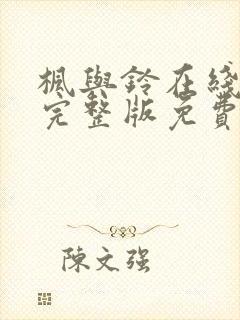 楓與鈴在綫
完整版免費
陳文强